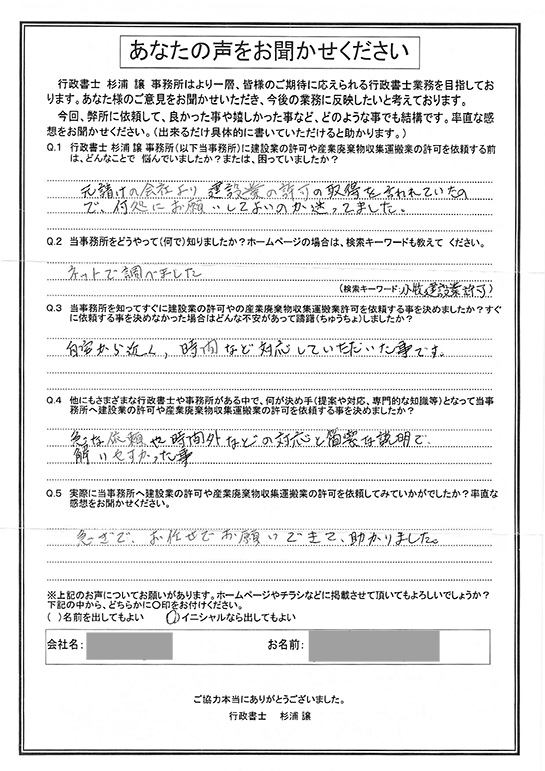 あなたの声をお聞かせください
行政書士 杉浦 譲 事務所はより一層、皆様のご期待に応えられる行政書士業務を目指してお
ります。あなた様のご意見をお聞かせいただき、今後の業務に反映したいと考えております。
今回、弊所に依頼して、良かった事や嬉しかった事など、どのような事でも結構です。率直な感
想をお聞かせください。（出来るだけ具体的に書いていただけると助かります。）
Q.1 行政書士 杉浦 譲 事務所（以下当事務所）に建設業の許可や産業廃棄物収集運搬業の許可を依頼する前
は、どんなことで 悩んでいましたか？または、困っていましたか？
元請けの会社より 建設業の許可の取得を言われていたの
で、何処にお願いしてよいのか迷ってました。
Q.2 当事務所をどうやって（何で）知りましたか？ホームページの場合は、検索キーワードも教えて ください。
ネットで調べました
（検索キーワード:小牧建設業許可）
Q.3 当事務所を知ってすぐに建設業の許可やの産業廃棄物収集運搬業許可を依頼する事を決めましたか？すぐ
に依頼する事を決めなかった場合はどんな不安があって躊躇（ちゅうちょ）しましたか？
自宅から近く、時間など対応していただいた事です。
Q.4 他にもさまざまな行政書士や事務所がある中で、何が決め手（提案や対応、専門的な知識等）となって当事
務所へ建設業の許可や産業廃棄物収集運搬業の許可を依頼する事を決めましたか？
急な依頼や時間外などの対応と簡要な説明で
解りやすかった事
Q.5 実際に当事務所へ建設業の許可や産業廃棄物収集運搬業の許可を依頼してみていかがでしたか？率直な
感想をお聞かせください。
急ぎで、お任せでお願いできて、助かりました。
※上記のお声についてお願いがあります。ホームページやチラシなどに掲載させて頂いてもよろしいでしょうか？
下記の中から、どちらかに〇印をお付けください。
（ ）名前を出してもよい （〇）イニシャルなら出してもよい
会社名： お名前：
ご協力本当にありがとうございました。
行政書士 杉浦 譲